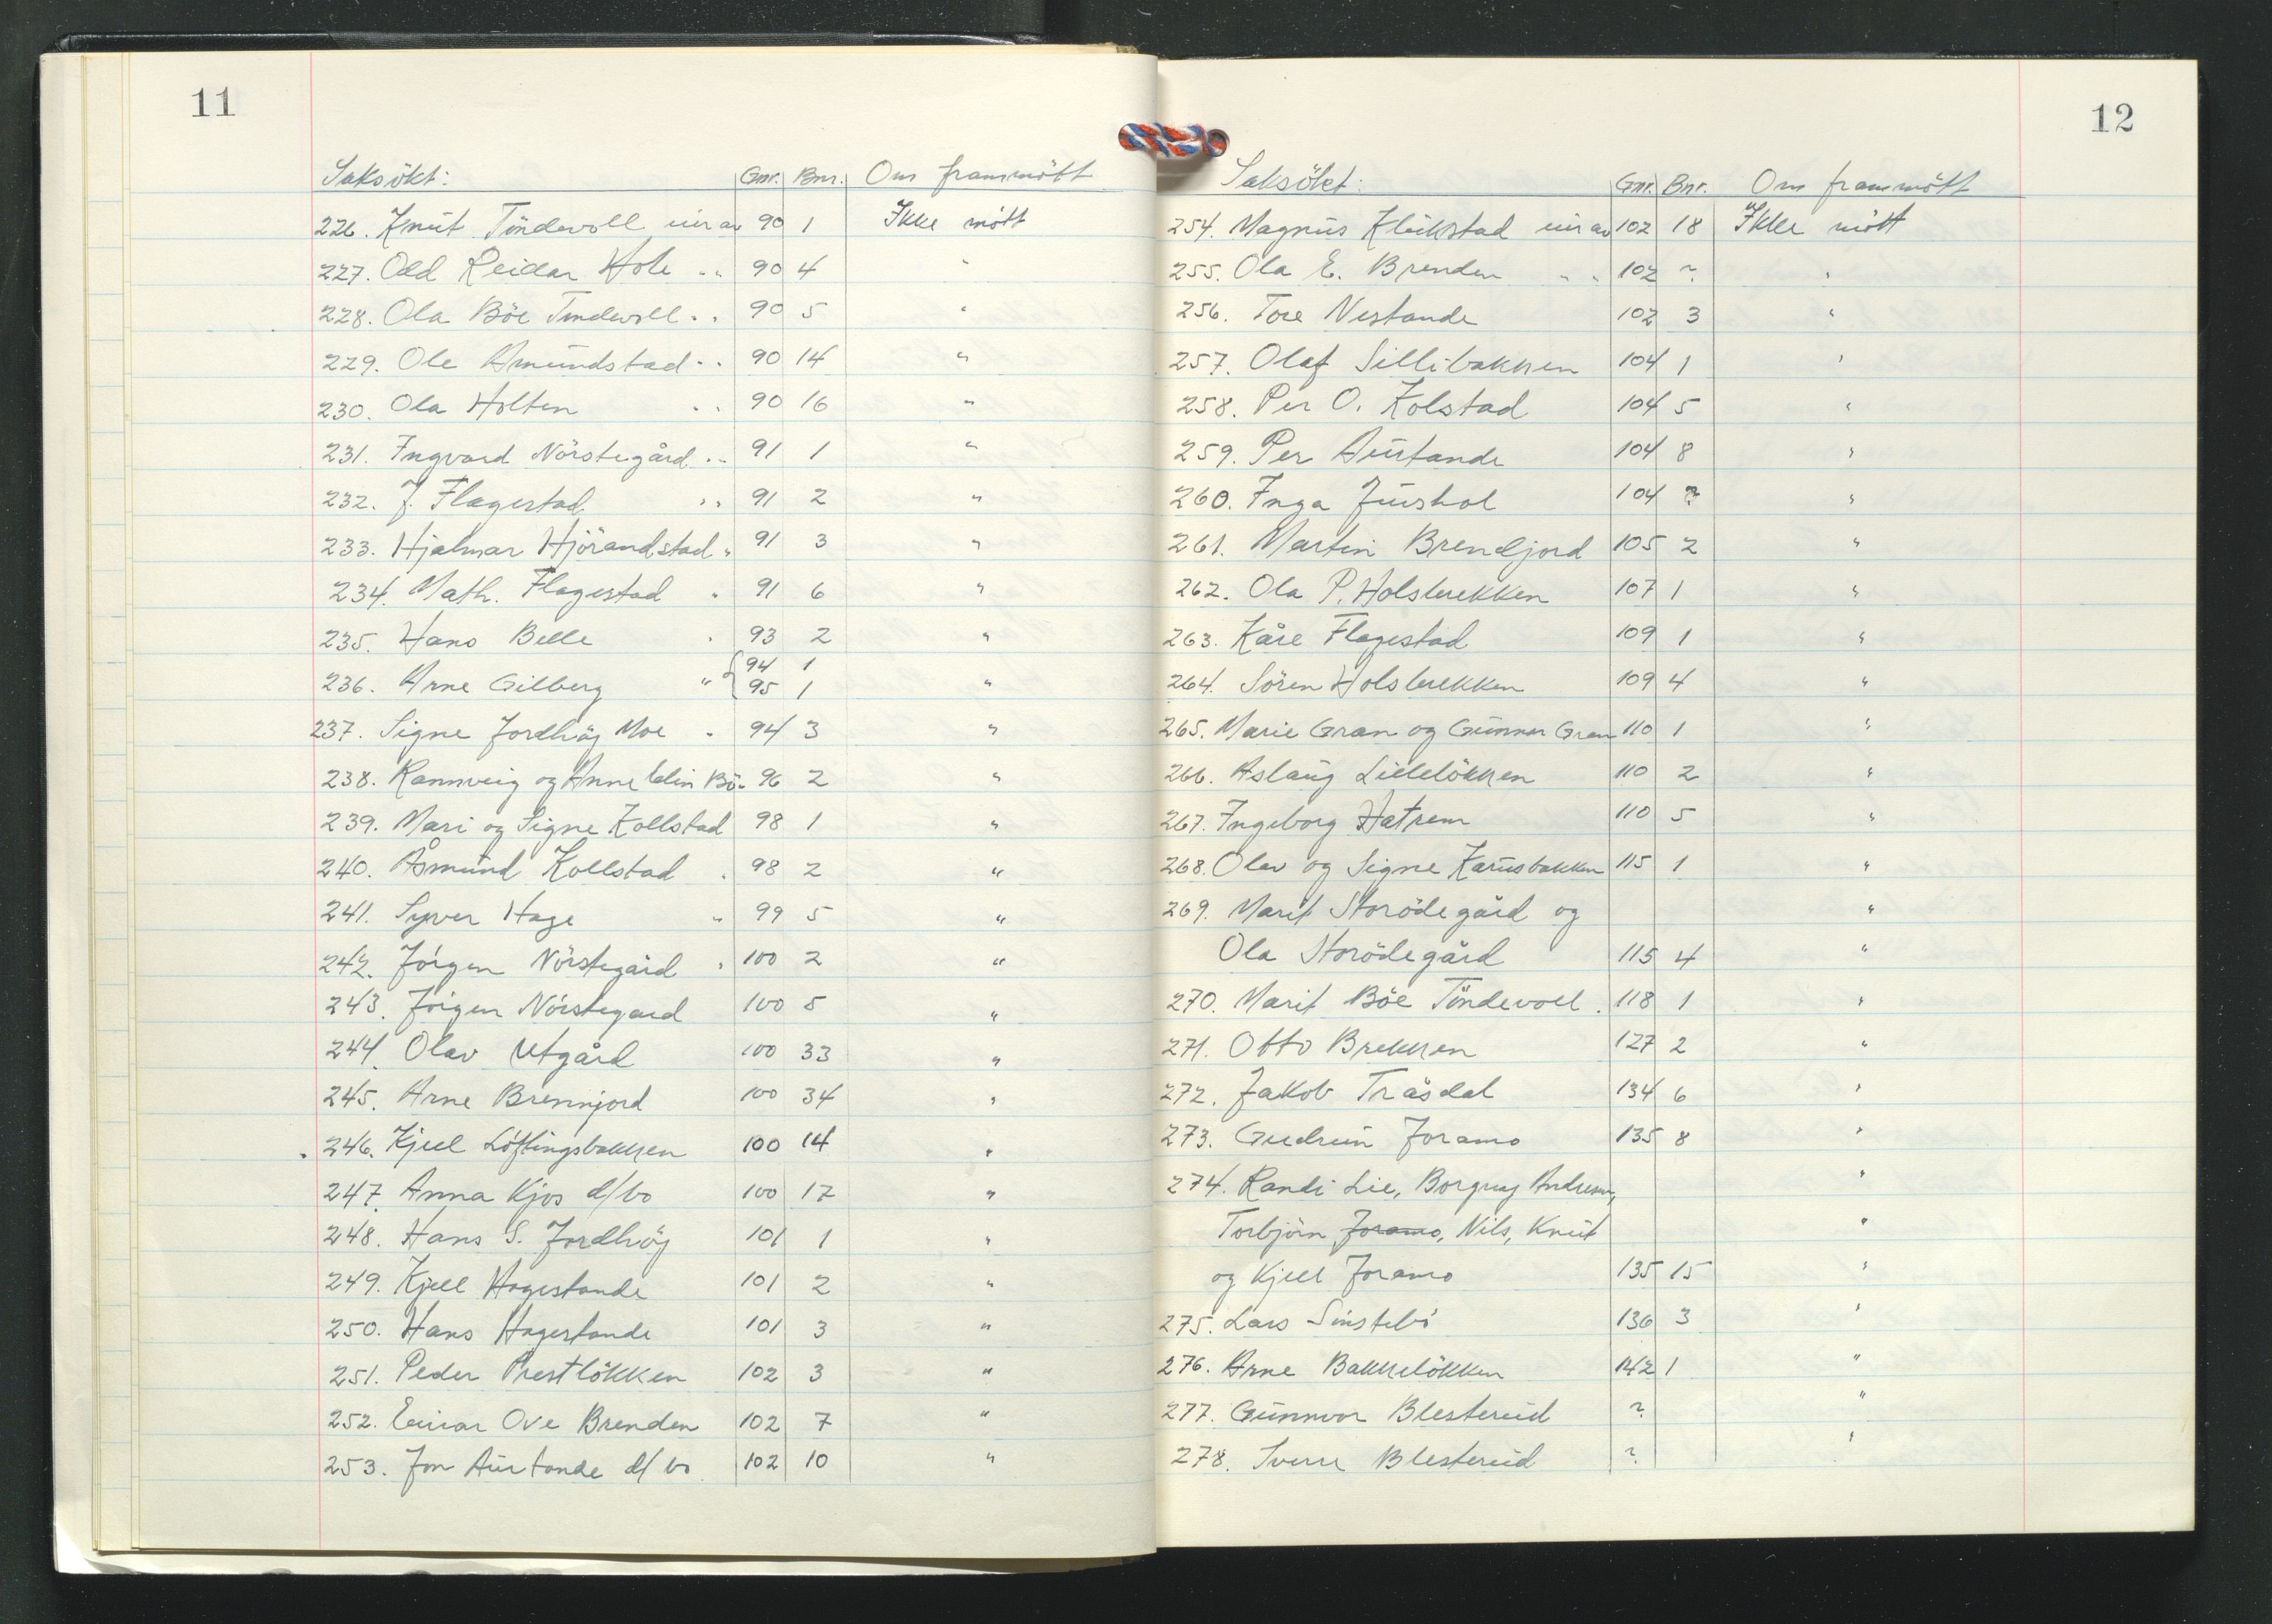 11
Saksökt: Gnr. Bnr. Om frammött
226. Knut Töndevoll eier av 90 1 Ikke mött
227. Odd Reidar Hole " " 90 4 "
228. Ola Böe Tindevoll " " 90 5 "
229. Ole Amundstad " " 90 14 "
230. Ola Holten " " 90 16 "
231. Ingvard Nörstegård " " 91 1 "
232. J. Flagestad " " 91 2 "
233. Hjalmar Hjörandstad " 91 3 "
234. Math. Flagestad " 91 6 "
235. Hans Belle " 93 2 "
94 1
236. Arne Gilberg " 95 1 "
237. Signe Jordhöy Moe " 94 3 "
238. Rannveig og Anne Elin Bö " 96 2 "
239. Mari og Signe Kollstad 98 1 "
240. Åsmund Kollstad " 98 2 "
241. Syver Hage " 99 5 "
242. Jörgen Nörstegård " 100 2 "
243. Jörgen Nörstegard 100 5 "
244. Olav Utgård 100 33 "
245. Arne Brennjord 100 34 "
246. Kjell Löftingsbakken 100 14 "
247. Anna Kjos d/bo 100 17 "
248. Hans S. Jordhöy 101 1 "
249. Kjell Hagestande 101 2 "
250. Hans Hagestande 101 3 "
251. Peder Prestlökken 102 3 "
252. Einar Ove Brenden 102 7 "
253. Jon Austande d/bo 102 10 "
12
Saksökt: Gnr. Bnr. Om frammött
254. Magnus Kleikstad eier av 102 18 Ikke mött
255. Ola E. Brenden " " 102 ? "
256. Tore Nestande 102 3 "
257. Olaf Sillibakken 104 1 "
258. Per O. Kolstad 104 5 "
259. Per Austande 104 8 "
260. Inga Juvshol 104 ? "
261. Martin Brendjord 105 2 "
262. Ola P. Holsbrekken 107 1 "
263. Kåre Flagestad 109 1 "
264. Sören Holsbrekken 109 4 "
265. Marie Gran og Gunnar Gran 110 1 "
266. Aslaug Lillelökken 110 2 "
267. Ingeborg Hatrem 110 5 "
268. Olav og Signe Karusbakken 115 1 "
269. Marit Storödegård og "
Ola Storödegård 115 4 "
270. Marit Böe Töndevoll 118 1 "
271. Otto Brekken 127 2 "
272. Jakob Träsdal 134 6 "
273. Gudrun Joramo 135 8 "
274. Randi Lie, Borgny Andresen, "
Torbjörn Joramo, Nils, Knut "
og Kjell Joramo 135 15 "
275. Lars Sinstebö 136 3 "
276. Arne Bakkelökken 142 1 "
277. Gunnvor Blestereid ? "
278. Sverre Blestereid ? "